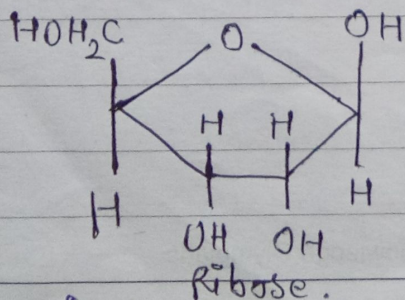 HOH₂C O OH
H H
H H
OH OH
Ribose.